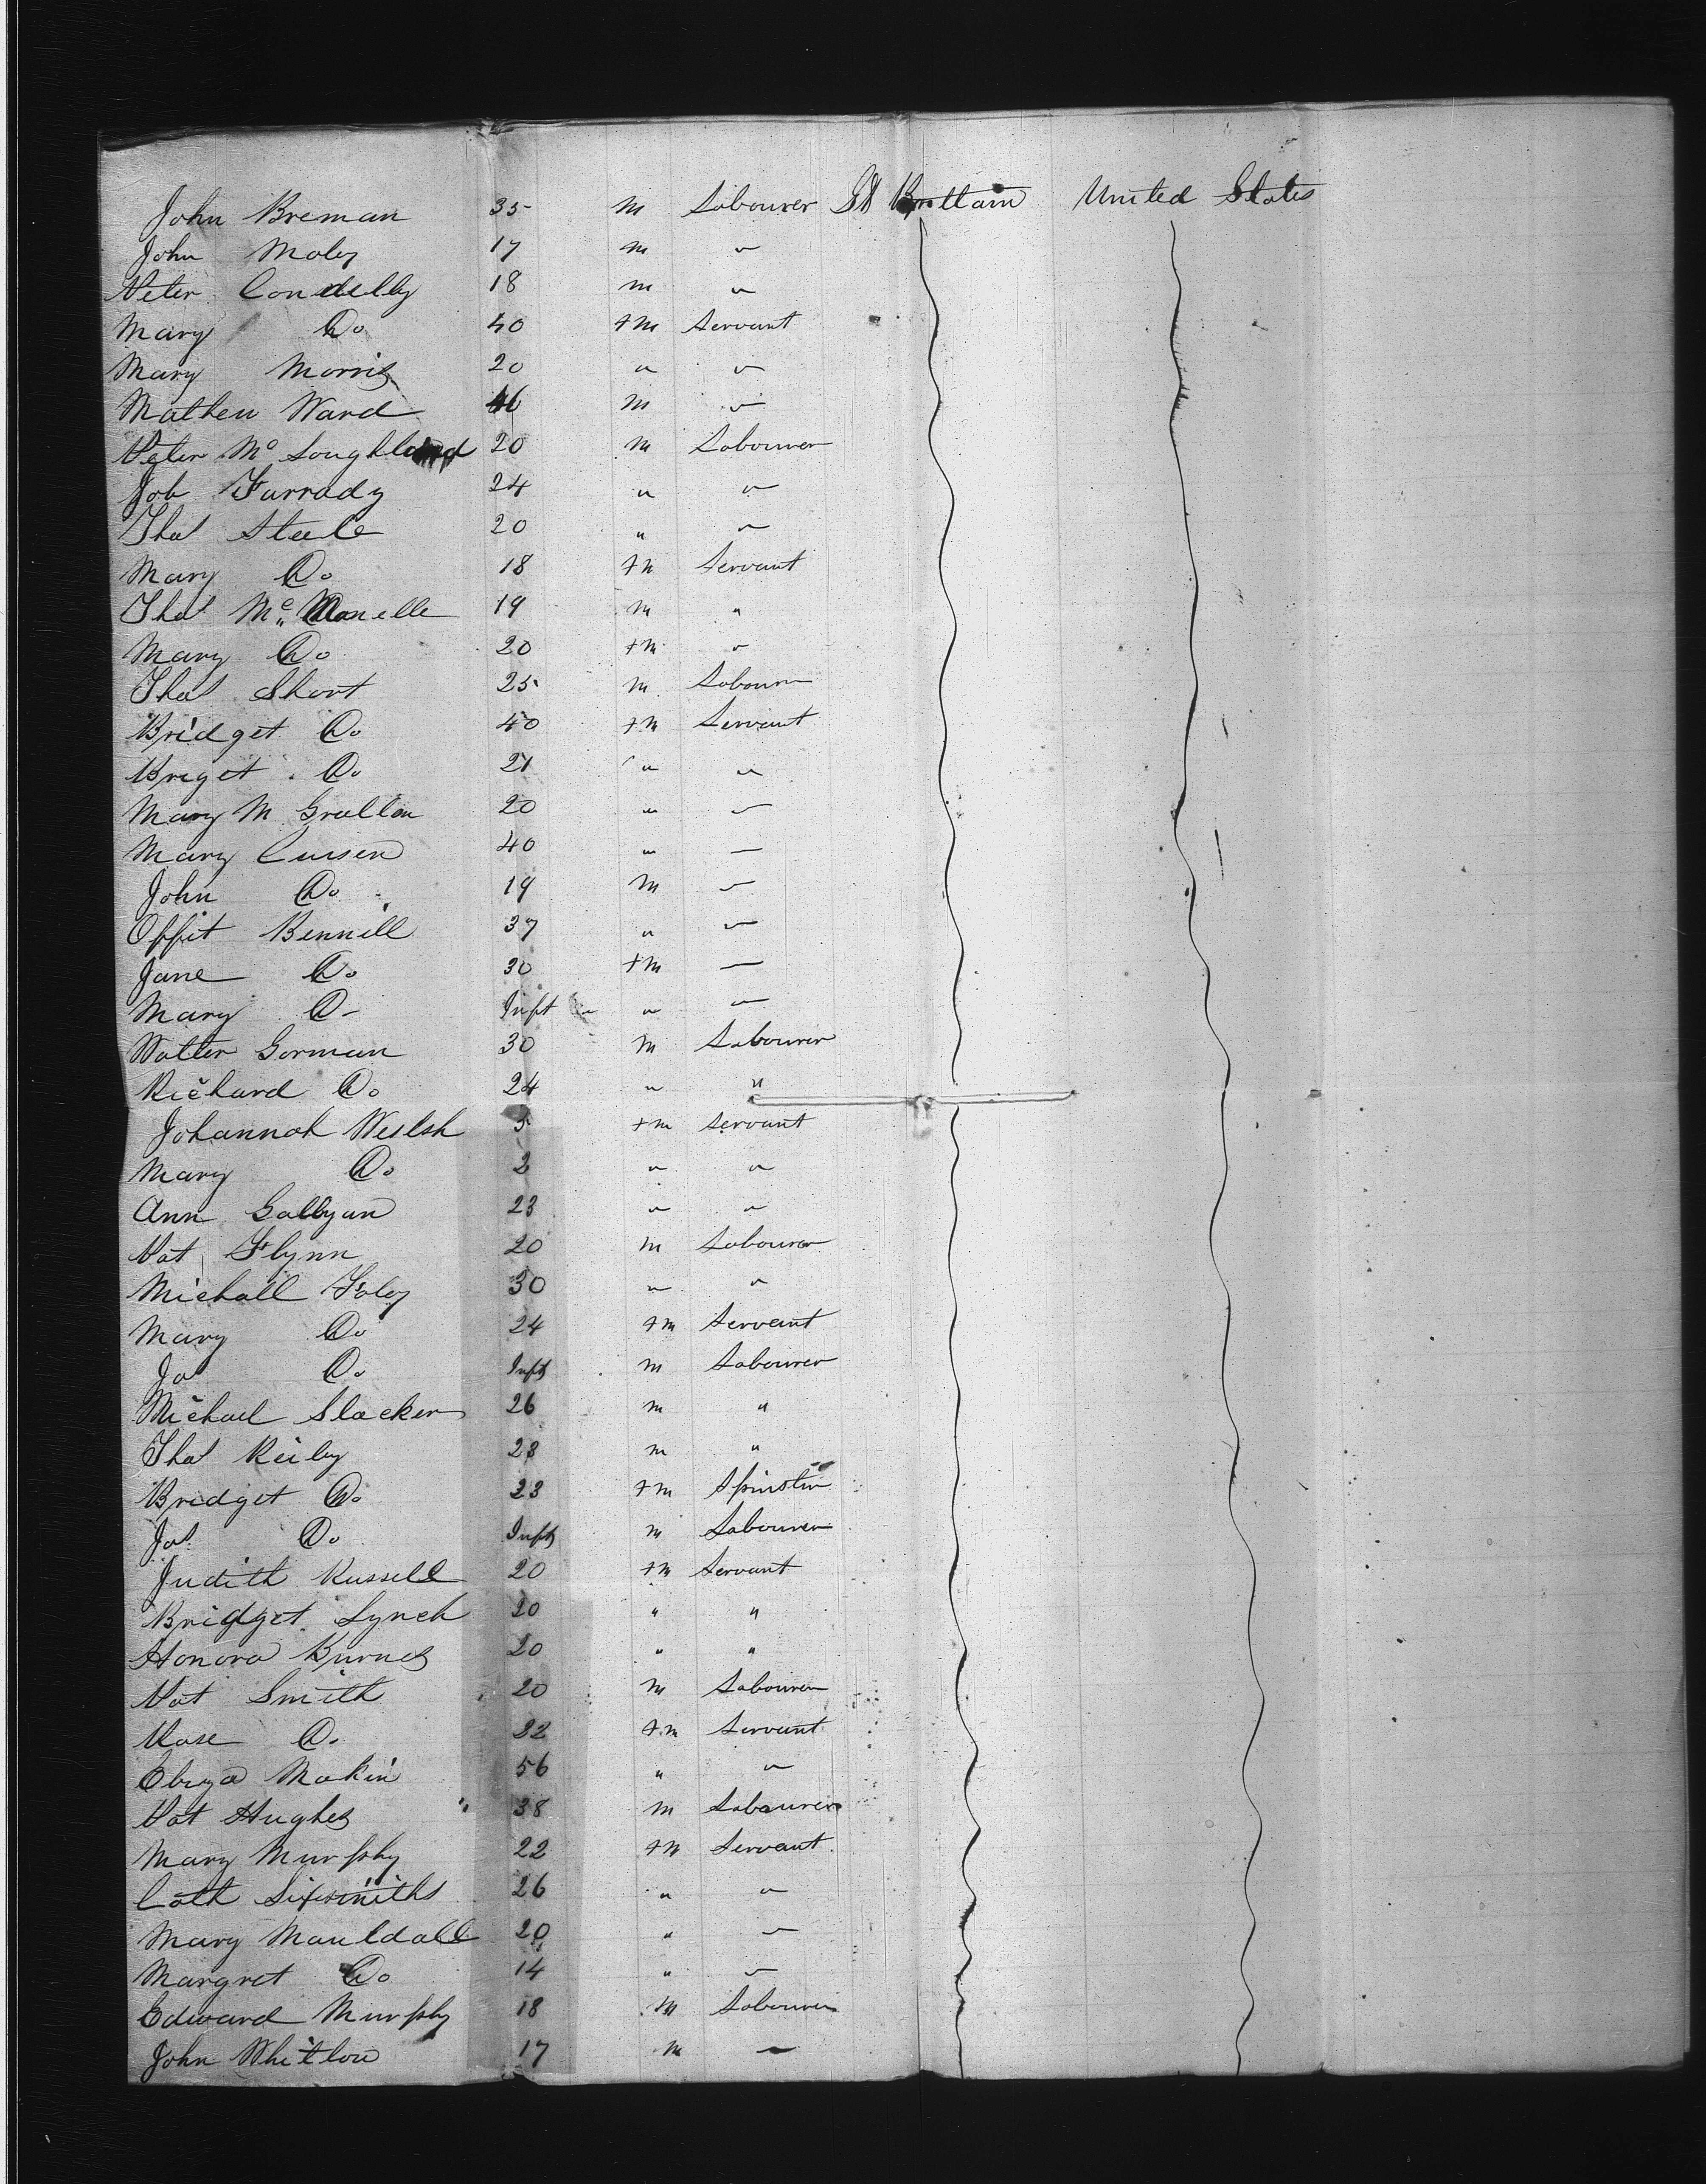 John Breman 35 m Labourer Gt Brittain United States
John Moley 17 m "
Peter Condelly 18 m "
Mary Do 40 +m Servant
Mary Morris 20 " "
Mathew Ward 46 m "
Peter Mc 20 m Labourer
Job Farrady 24 " "
Thos Steele 20 " "
Mary Do 18 +m Servant
Thos Mc 19 m "
Mary Do 20 +m "
Thos Short 25 m Labourer
Bridget Do 40 +m Servant
Briget Do 21 " "
Mary M Grattan 20 " "
Mary Cursen 40 " "
John Do 19 m "
Offit Bennill 37 " "
Jane Do 30 +m "
Mary Do Inft " "
Walter Gorman 30 m Labourer
Richard Do 24 " "
Johannah Weelsh 3 +m Servant
Mary Do 2 " "
Ann Gallyan 23 " "
Pat Flynn 20 m Labourer
Michall Foley 30 " "
Mary Do 24 +m Servant
Jas Do Inft m Labourer
Michael Slacker 26 m "
Thos Reiley 28 m "
Bridget Do 23 +m Spinster
Jas Do Inft m Labourer
Judith Russell 20 +m Servant
Bridget Lynch 20 " "
Honora Burnes 20 " "
Pat Smith 20 m Labourer
Rose Do 22 +m Servant
Makin 56 " "
Pat Hughes 38 m Labourer
Mary Murphy 22 +m Servant
Cath Sixsmiths 26 " "
Mary Mauldall 20 " "
Margret Do 14 " "
Edward Murphy 18 m Labourer
John Whitlow 17 m "